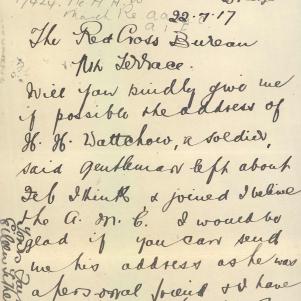 22-7-17
The Red Cross Bureau
Nth Terrace.
Will you kindly give me
if possible the address of
H. H. Wattchow, a soldier,
said gentleman left about
Feb I think & joined I believe
the A. M. C. I would be
glad if you can send
me his address as he was
a personal friend & I have